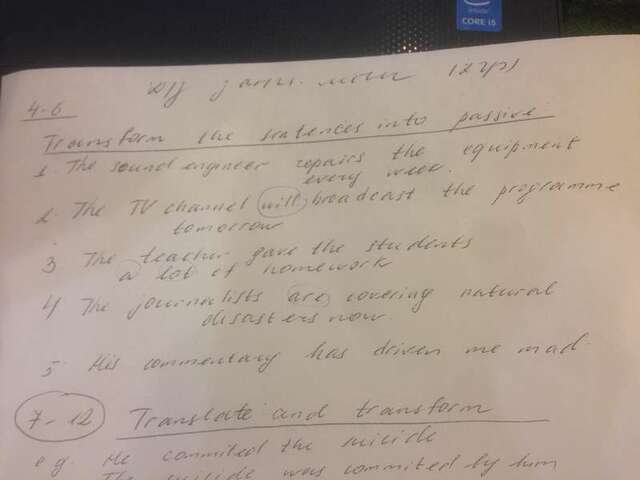 CORE i5
4-6
Transform the sentences into passive
1. The sound engineer repairs the equipment
every week.
2. The TV channel will broadcast the programme
tomorrow
3 The teacher gave the students
a lot of homework
4 The journalists are covering natural
disasters now.
5. His commentary has driven me mad.
7-12 Translate and transform
e.g. He commited the suicide
The suicide was commited by him